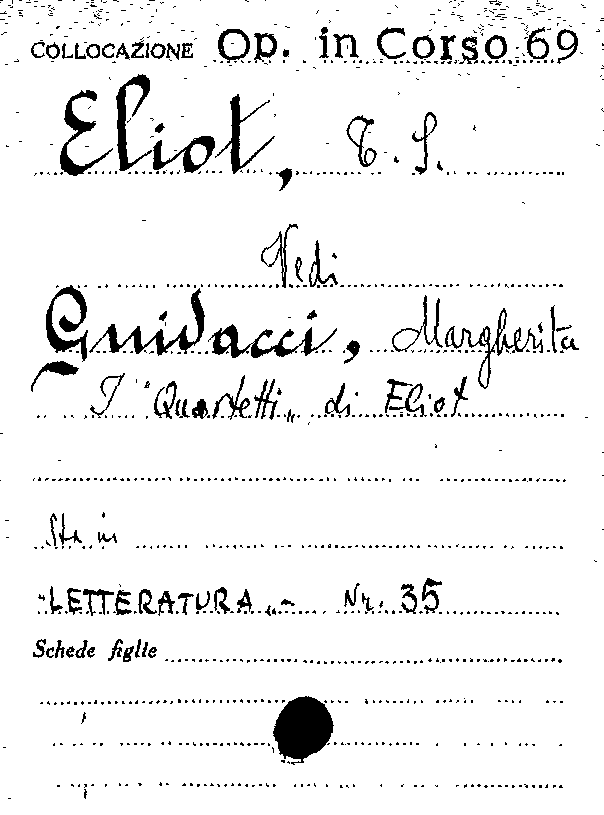 COLLOCAZIONE Op. in Corso 69
Eliot, T. S.
Vedi
Guidacci, Margherita
I "Quartetti„ di Eliot
Sta in
"LETTERATURA„- Nr. 35
Schede figlie